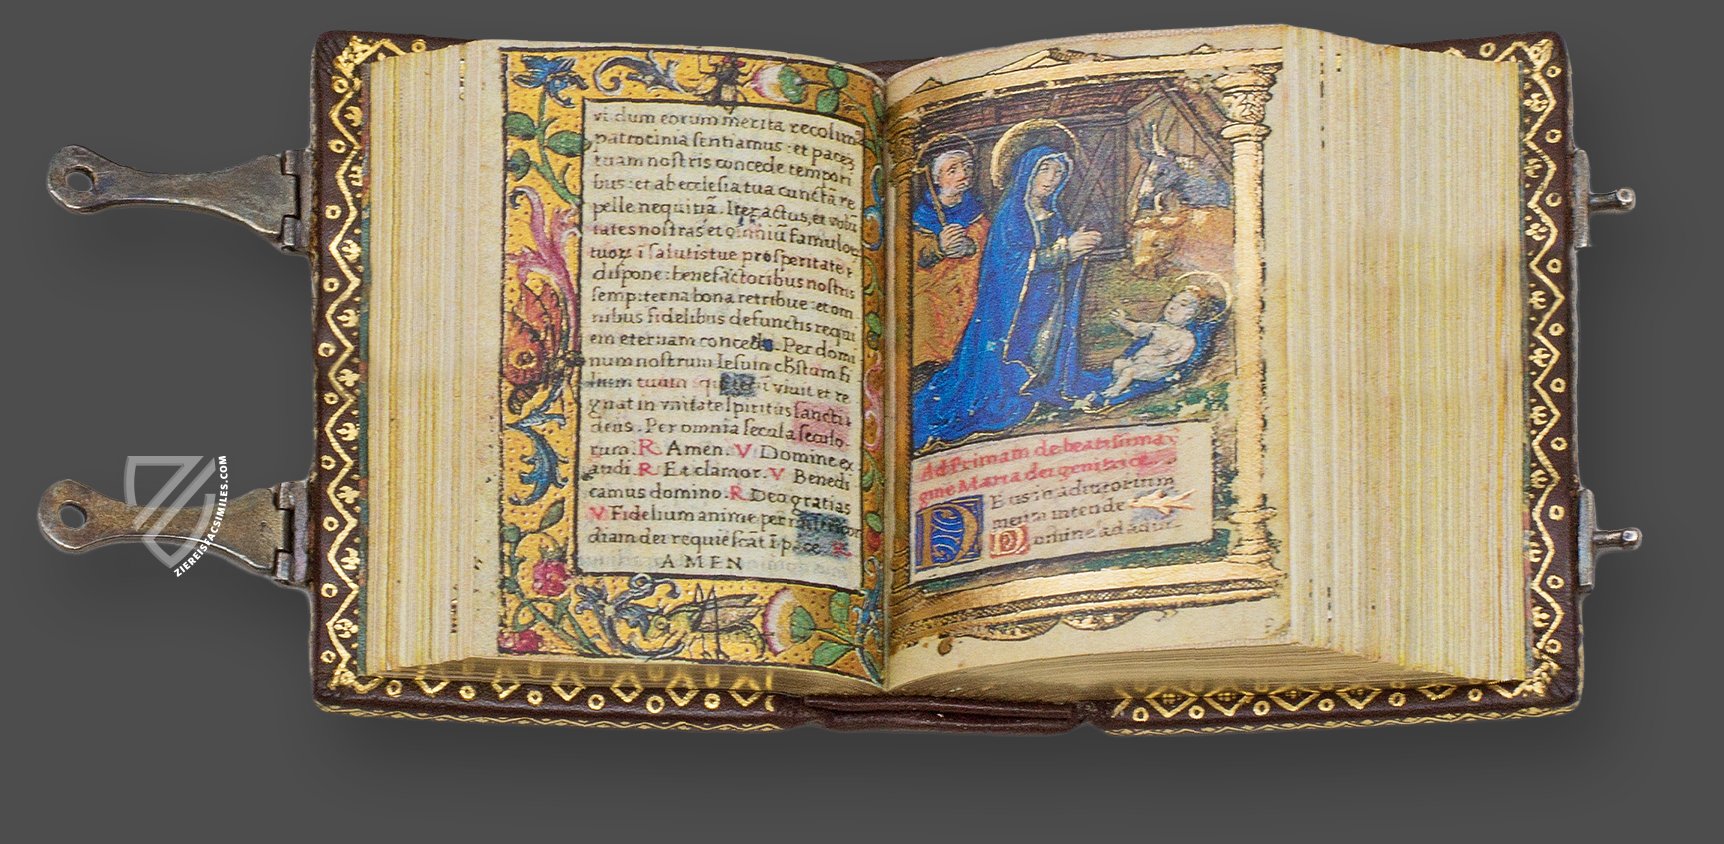 vi dum eorum merita recolim⁹
patrocinia sentiamus : et pacez
tuam nostris concede tempori
bus : et ab ecclesia tua cunctā re
pelle nequitiā . Iter, actus, et volū
tates nostras et omniū famulor
tuorꝫ ī salutis tue prosperitate
dispone : benefactoribus nostris
sempiterna bona retribue : et om
nibus fidelibus defunctis requi
em eternam concede . Per domi
num nostrum Iesum christum fi
lium tuum qui tecū vivit et re
gnat in vnitate spiritus sancti
deus . Per omnia secula seculo-
rum . R Amen . V Domine ex
audi . R Et clamor . V Benedi
camus domino . R Deo gratias
V Fidelium anime per misericor
diam dei requiescāt ī pace . R
AMEN
Ad Primam de beatissima
gine Maria dei genitrice.
DEus in adiutorium
meum intende
Domine ad adiu-
ZIEREISFACSIMILES.COM